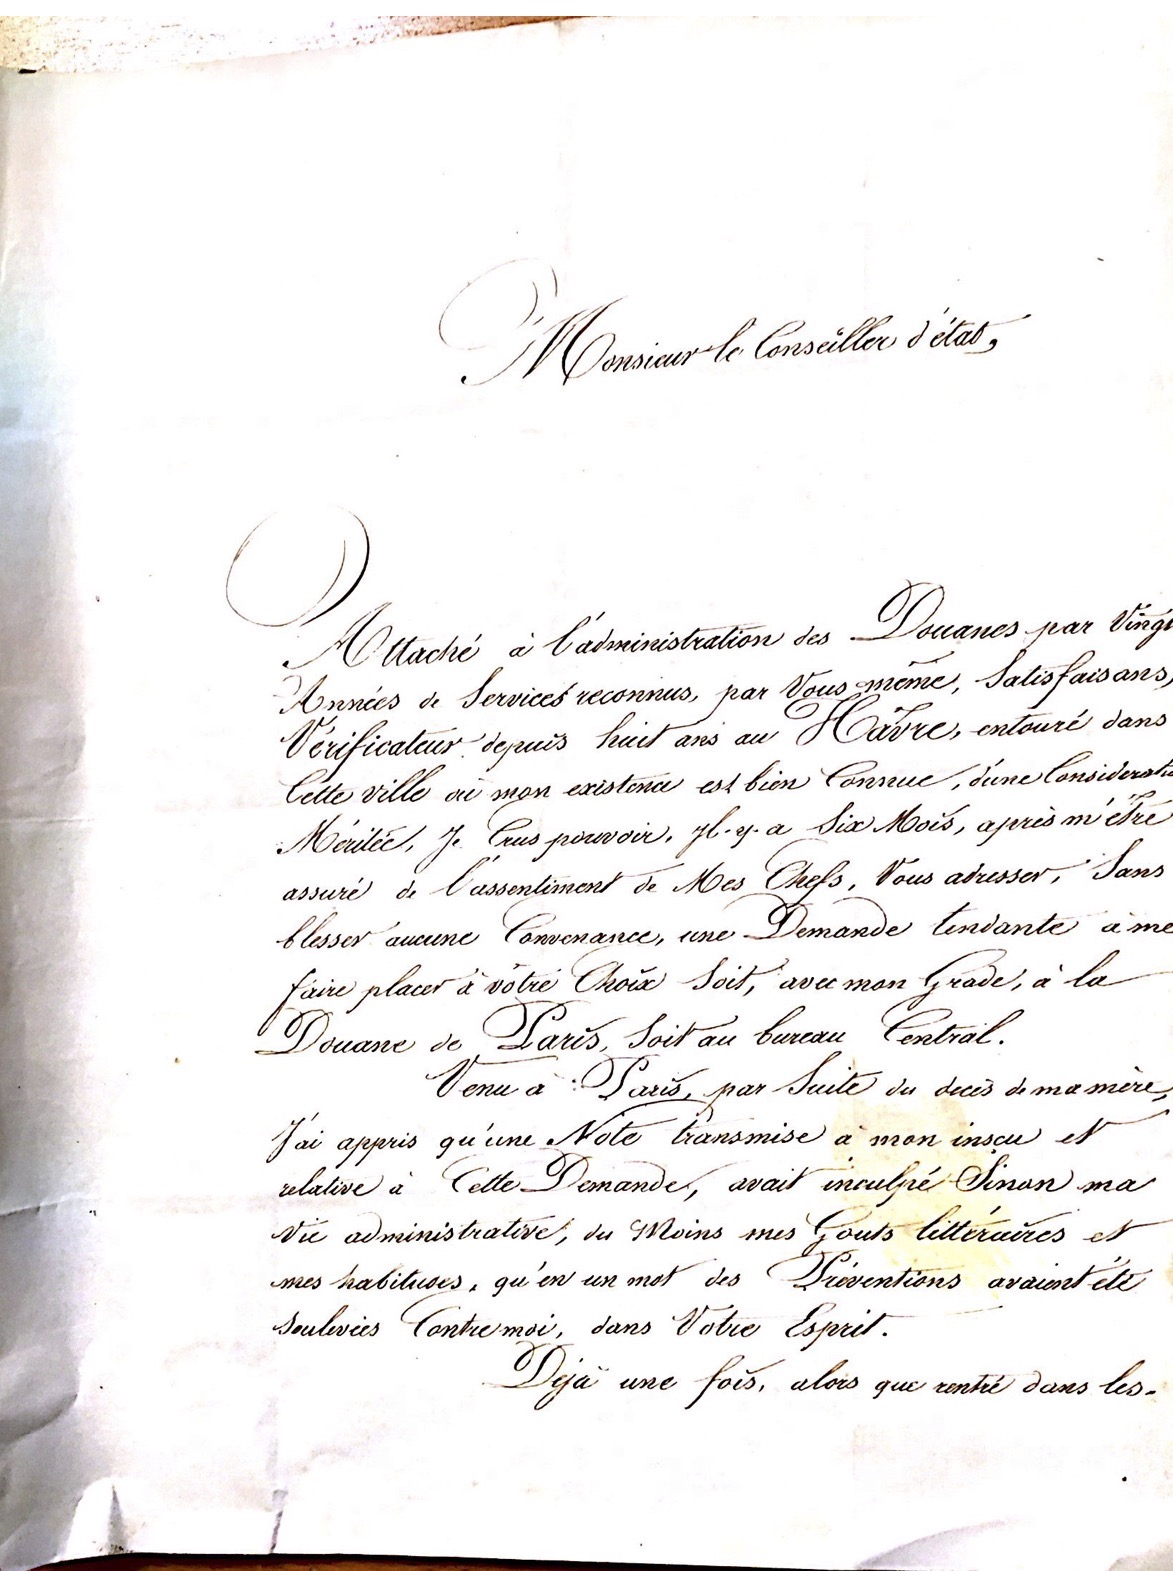 Monsieur le Conseiller d'état,
Attaché à l'administration des Douanes par Vingt
Années de Services reconnus, par Vous même, Satisfaisans,
Vérificateur depuis huit ans au Hâvre, entouré dans
Cette ville où mon existence est bien Connue, d'une Considératio
Méritée, Je Crus pouvoir, Il y a Six Mois, après m'être
assuré de l'assentiment de Mes Chefs, Vous adresser, Sans
blesser aucune Convenance, une Demande tendante à me
faire placer à vôtre Choix Soit, avec mon Grade, à la
Douane de Paris, Soit au bureau Central.
Venu à Paris, par Suite du decès de ma mère,
J'ai appris qu'une Note transmise à mon insçu et
relative à Cette Demande, avait inculpé Sinon ma
Vie administrative, du Moins mes Gouts littéraires et
mes habitudes, qu'en un mot des Préventions avaient été
Soulevées Contre moi, dans Votre Esprit.
Déjà une fois, alors que rentré dans les-